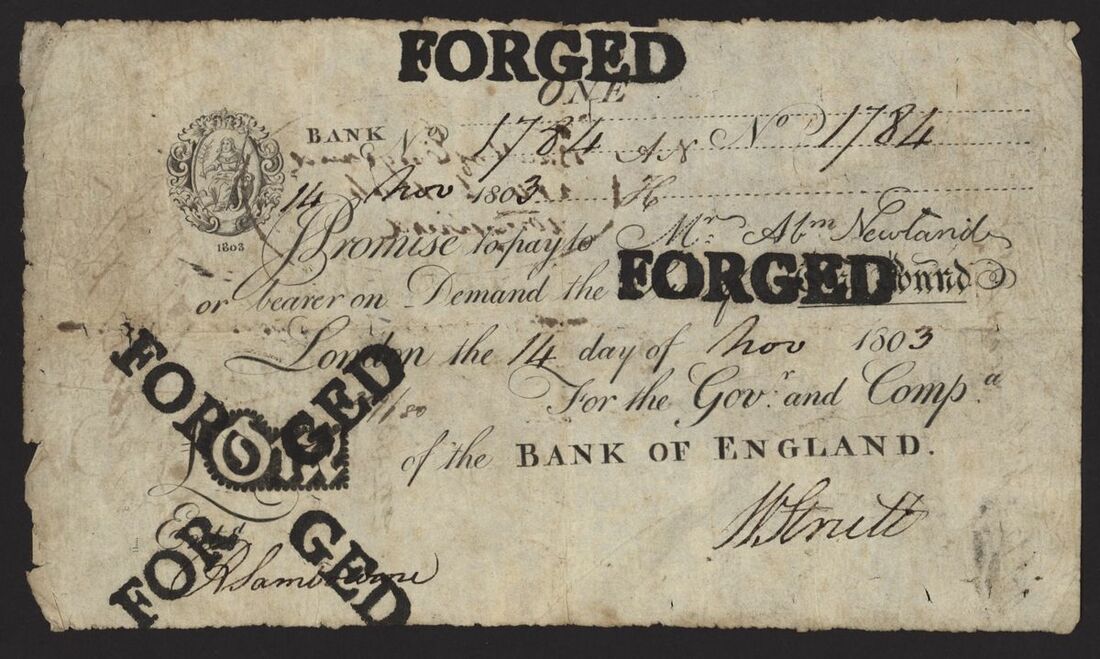 FORGED
ONE
BANK No 1784 AN No 1784
14 Nov 1803 H
1803
I Promise to pay to Mr. Abm Newland
or bearer on Demand the FORGED Pound
London the 14 day of Nov 1803
FORGED
For the Govr. and Compa.
of the BANK OF ENGLAND.
£ ONE
W Strutt
Entd
FORGED